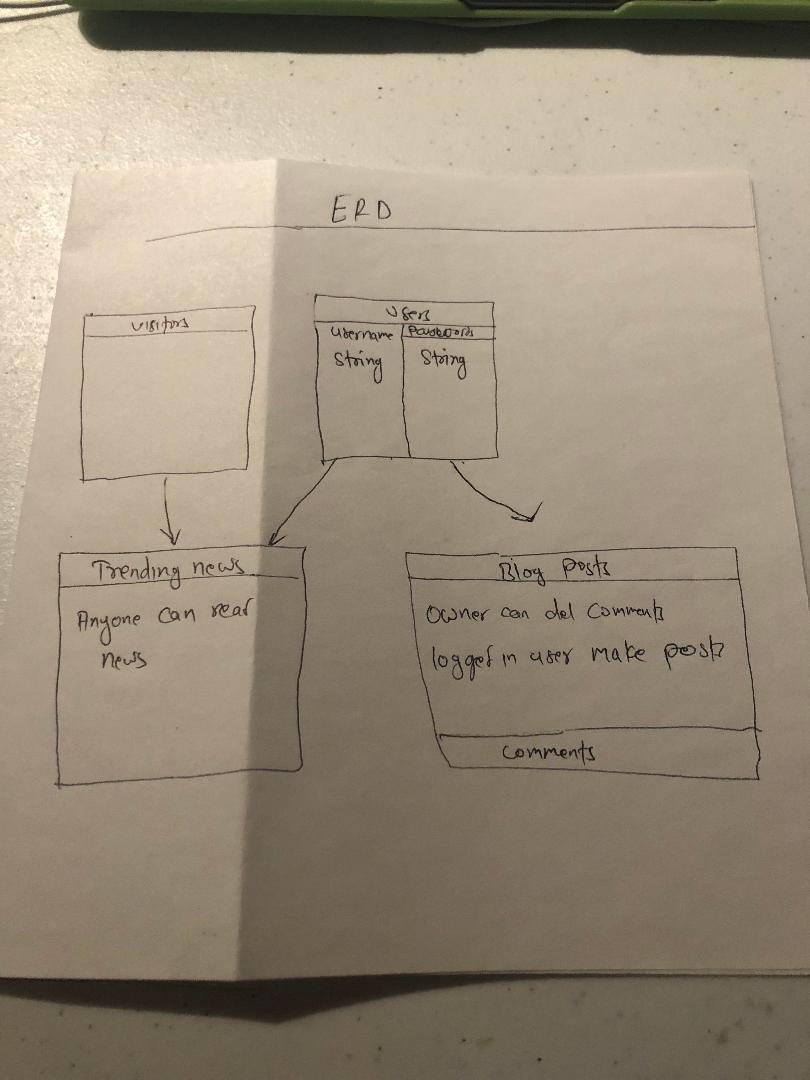 ERD
visitors
Users
Username
Passwords
String
String
Trending news
Anyone can read
news
Blog posts
Owner can del Comments
logged in user make posts
Comments